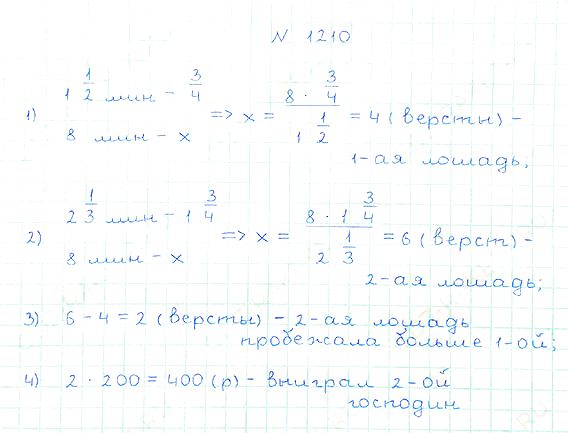 N 1210
1) 1 1/2 мин - 3/4
8 мин - x
=> x = (8 · 3/4) / (1 1/2) = 4 (версты) -
1-ая лошадь;
2) 2 1/3 мин - 1 3/4
8 мин - x
=> x = (8 · 1 3/4) / (2 1/3) = 6 (верст) -
2-ая лошадь;
3) 6 - 4 = 2 (версты) - 2-ая лошадь
пробежала больше 1-ой;
4) 2 · 200 = 400 (р) - выиграл 2-ой
господин